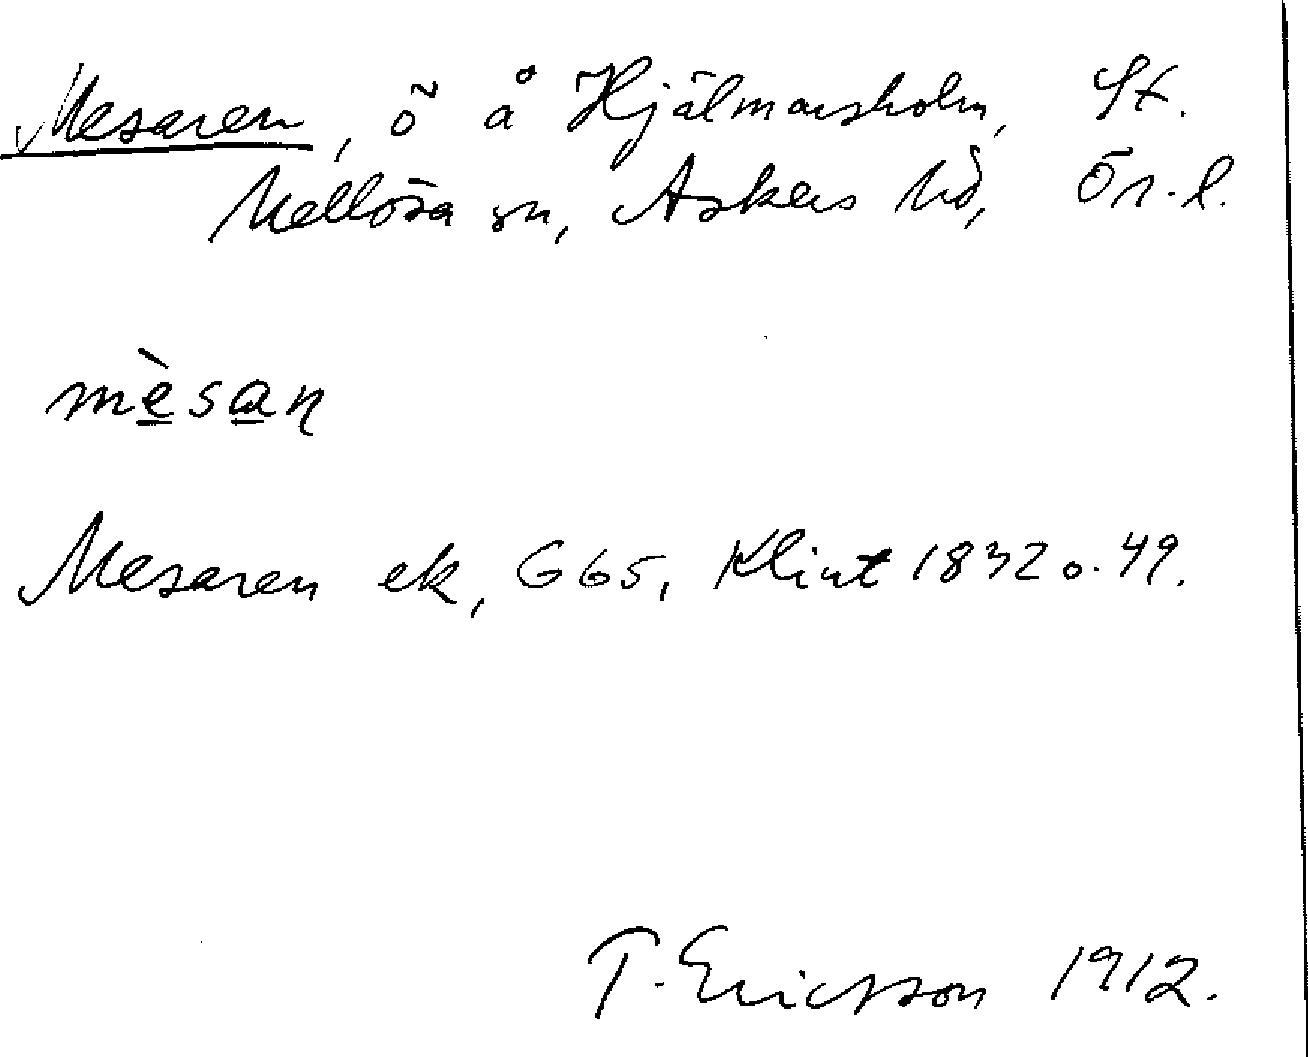 Mesaren, ö å Hjälmarsholm, St.
Mellösa sn, Askers hd, Ör. l.
mèsaɳ
Mesaren ek, G65, Klint 1832 o. 49.
T. Ericsson 1912.